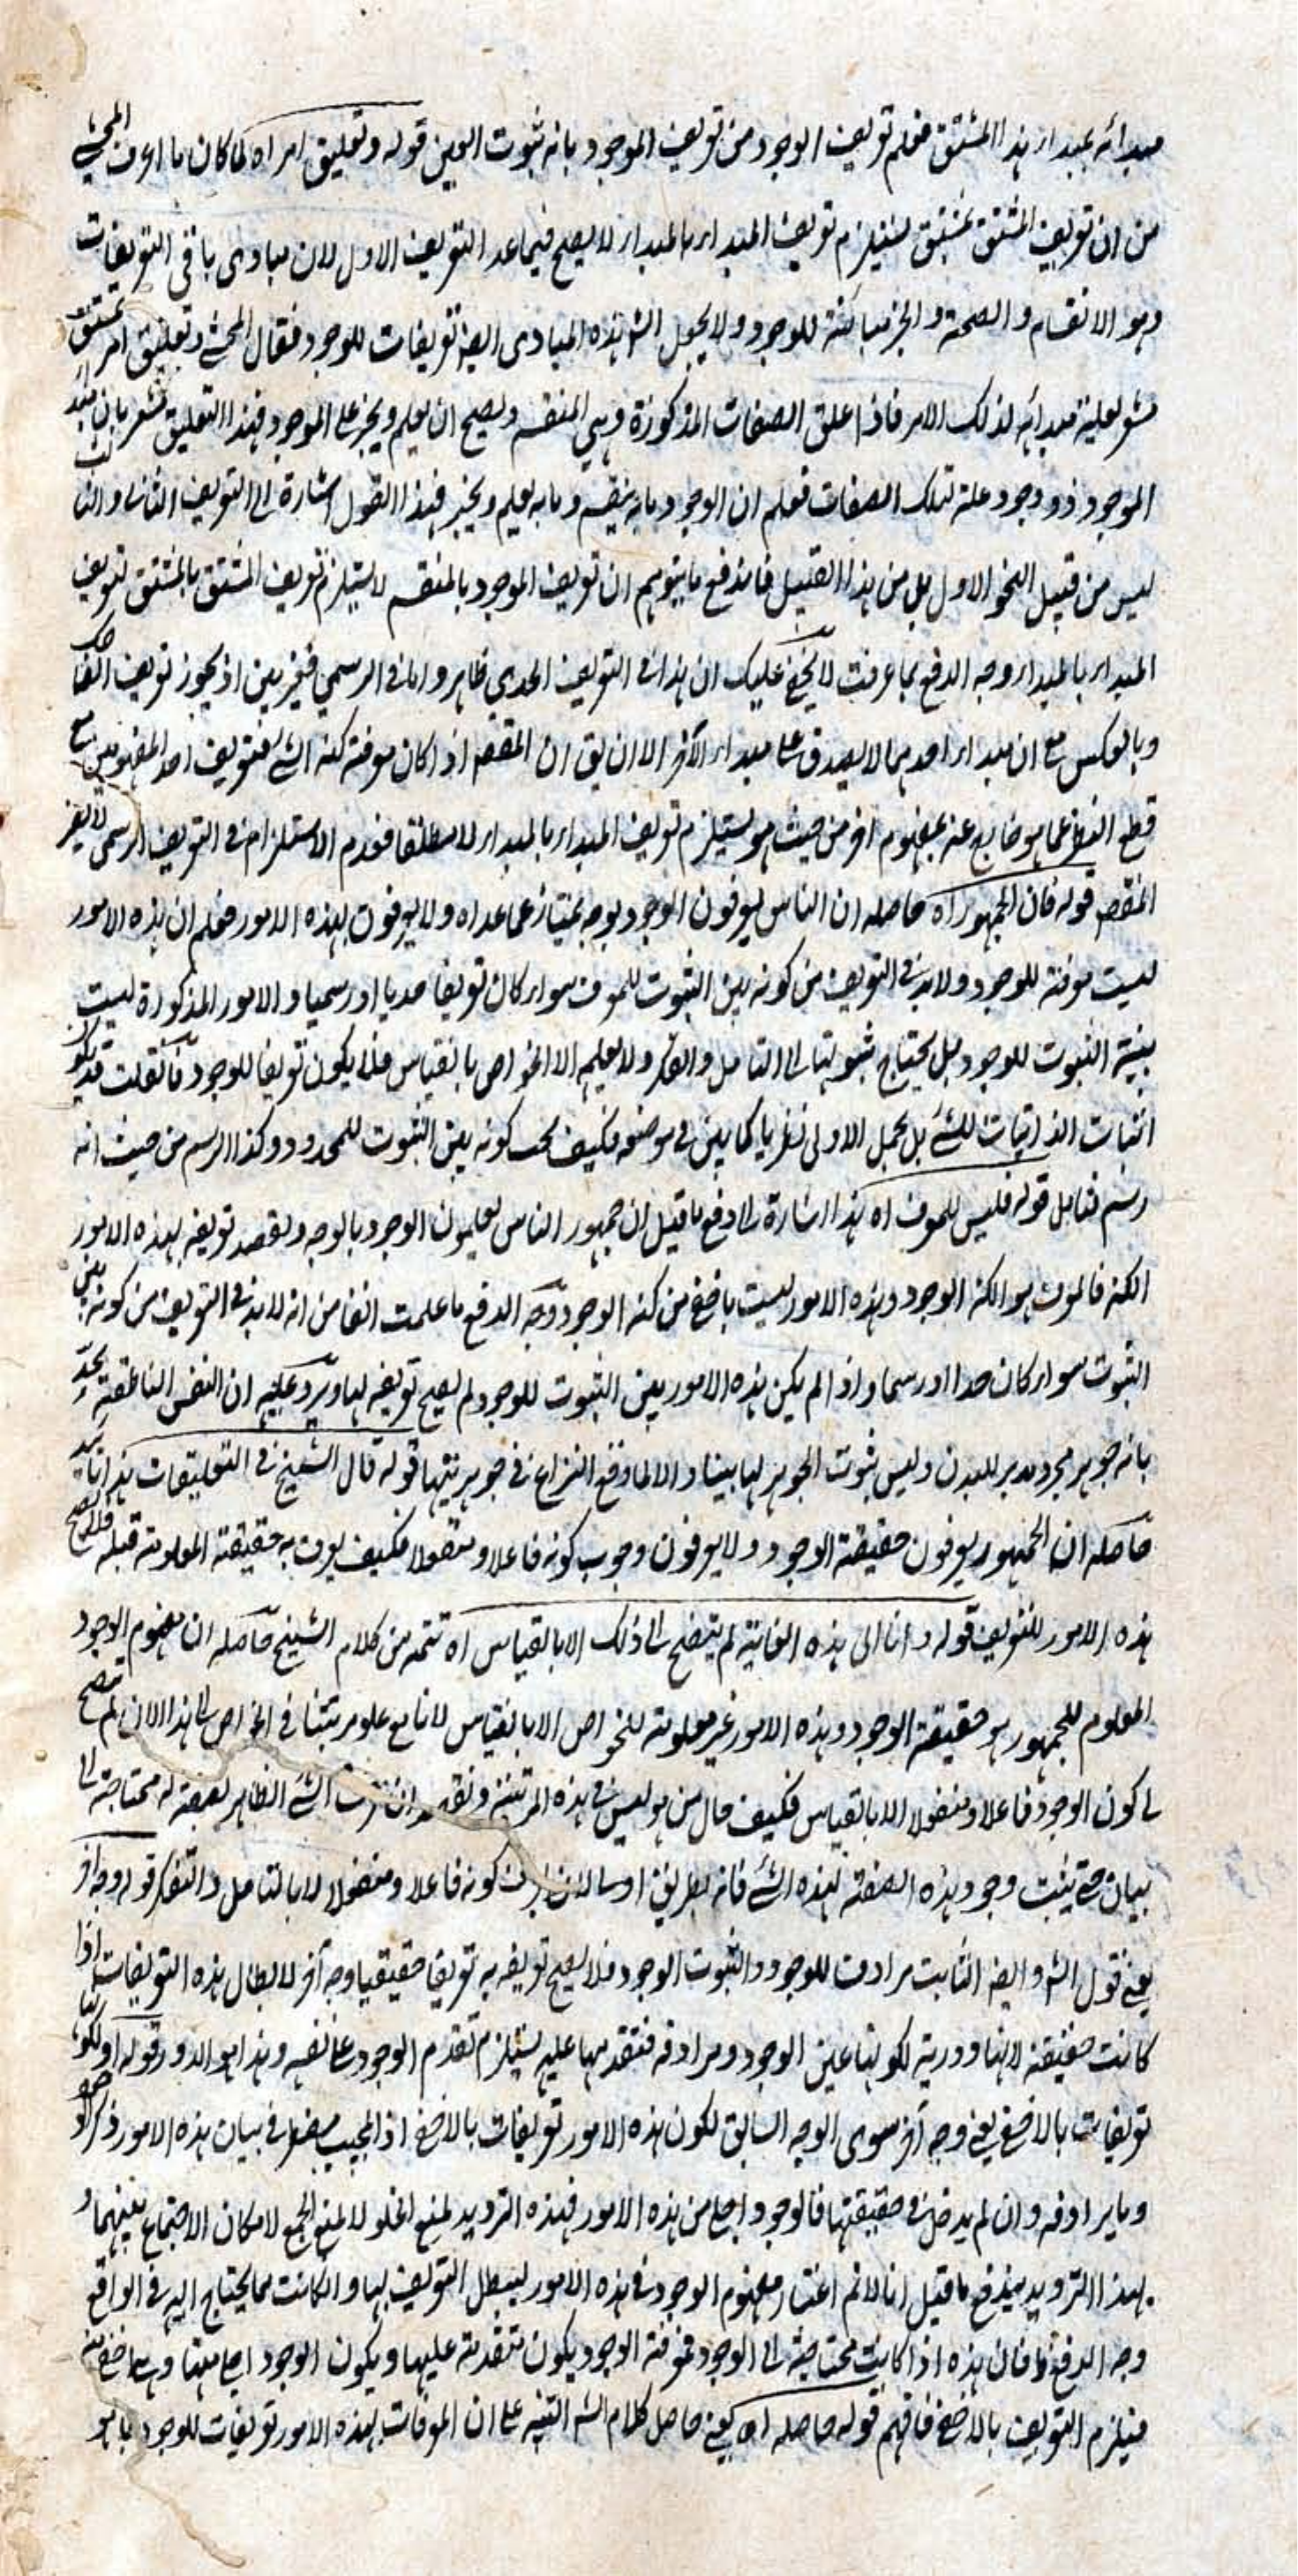 مبدائه بمبدا هذا المشتق فعلم تعريف الوجود من تعريف الموجود بانه ثبوت العين قوله وتعليق امر اه لما كان ما اعرف المحشي
من ان تعريف المشتق بمشتق يستلزم تعريف المبدا بالمبدا لا يصح فيما عدا التعريف الاول لان مبادى باقي التعريفات
وهو الانقسام والصحة والخبر مباينة للوجود ولا يجعل الش هذه المبادى ايض تعريفات للوجود فقال المحشي وتعليق امر بمشتق
مشعر بعلية مبدائه لذلك الامر فاذا علق الصفات المذكورة وهي المنقسم ويصح ان يعلم ويخبر على الموجود فهذا التعليق مشعر بان مبدا
الموجود ذو وجود علة تلك الصفات فعلم ان الوجود ما به ينقسم وما به يعلم ويخبر فهذا القول اشارة الى التعريف الثاني والثالث
ليس من قبيل النحو الاول بل من هذا القبيل فاندفع ما يتوهم ان تعريف الموجود بالمنقسم لا يستلزم تعريف المشتق بالمشتق لتعريف
المبدا بالمبدا ووجه الدفع بما عرفت لا يخفى عليك ان هذا في التعريف الحدي ظاهر واما في الرسمي فغير بين اذ يجوز تعريف الضاحك
وبالعكس مع ان مبدا احدهما لا يصدق على مبدا الآخر الا ان يق ان المقصم اذا كان معرفة كنه الشي فتعريف احد المفهومين مع
قطع النظر عما هو خارج عنه بمفهوم آخر من حيث هو يستلزم تعريف المبدا بالمبدا لا مطلقا فعدم الاستلزام في التعريف الرسمي لا يضر
المقصم قوله فان الجمهور اه حاصله ان الناس يعرفون الوجود بوجه يمتاز عما عداه ولا يعرفون بهذه الامور فعلم ان هذه الامور
ليست معرفة للوجود ولا بد في التعريف من كونه بين الثبوت للمعرف سواء كان تعريفا حديا او رسميا والامور المذكورة ليست
بينة الثبوت للوجود بل يحتاج ثبوتها الى التامل والفكر ولا يعلم الا الخواص بالقياس فلا يكون تعريفا للوجود فان قلت قد يكون
اثبات الذاتيات للشي بل بحمل الاولى نظريا كما بين في موضعه فكيف يجب كونه بين الثبوت للمحدود وكذا الرسم من حيث انه
رسم فتامل قوله فليس للمعرف اه هذا اشارة الى دفع ما قيل ان جمهور الناس يعلمون الوجود بالوجه ويقصد تعريفه بهذه الامور
الكنه فالمعرف هو الكنه الوجود وهذه الامور ليست باخفى من كنه الوجود ووجه الدفع ما علمت انفا من انه لا بد في التعريف من كونه بين
الثبوت سواء كان حدا او رسما واذا لم يكن هذه الامور بين الثبوت للوجود لم يصح تعريفه بها ويرد عليه ان النفس الناطقة يحد
بانه جوهر مجرد مدبر للبدن وليس ثبوت الجوهر لها بينا والا لما وقع النزاع في جوهريتها قوله قال الشيخ في التعليقات هذا تائيد
حاصله ان الجمهور يعرفون حقيقة الوجود ولا يعرفون وجوب كونه فاعلا ومنفعلا فكيف يعرف به حقيقته المعلومة قبله فلا يصح
هذه الامور للتعريف قوله وانا الى هذه الغاية لم يتضح لي ذلك الا بالقياس اه تتمه من كلام الشيخ حاصله ان مفهوم الوجود
المعلوم للجمهور هو حقيقة الوجود وهذه الامور غير معلومة للخواص الا بالقياس لانا مع علو مرتبتنا في الخواص الى هذا الان لم يتضح
لي كون الوجود فاعلا ومنفعلا الا بالقياس فكيف حال من هو ليس في هذه المرتبة الشي الظاهر بصفة له محتاجة الى
بيان حتى يثبت وجود هذه الصفة لهذه الشي فانه كونه فاعلا ومنفعلا الا بالتامل والتفكر قوله وجه آخر
يعني قول الش وايض الثابت مرادف للموجود والثبوت الوجود فلا يصح تعريفه به تعريفا حقيقيا وجه آخر لابطال هذه التعريفات اذا
كانت حقيقية لانها دورية لكونها عين الوجود ومرادفه فتقدمها عليه يستلزم تقدم الوجود على نفسه وهذا هو الدور قوله او لكونها
تعريفات بالاخفى يعني وجه آخر سوى الوجه السابق لكون هذه الامور تعريفات بالاخفى اذ المجيب مضطر في بيان هذه الامور ذكر الوجود
وما يرادفه وان لم يدخل في حقيقتها فالوجود اجلى من هذه الامور فهذه الترديد لمنع الخلو لا لمنع الجمع لامكان الاجتماع بينهما و
بهذا الترديد يندفع ما قيل انا لا نم اعتبار مفهوم الوجود في هذه الامور ليبطل التعريف بها وان كانت مما يحتاج اليه في الواقع
وجه الدفع فان هذه اذا كانت محتاجة الى الوجود فمعرفة الوجود يكون متقدمة عليها ويكون الوجود اجلى منها وهي اخفى منه
فيلزم التعريف بالاخفى فافهم قوله حاصله اه يعني حاصل كلام الش التنبيه على ان المعرفات بهذه الامور تعريفات للوجود بما هو